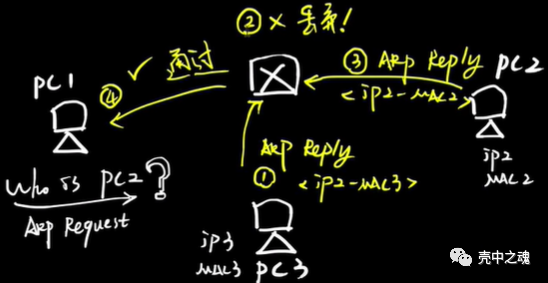 ② × 丢弃!
④ ✓ 通过
③ ARP Reply
<ip2-MAC2>
PC1
PC2
ip2
MAC2
ARP Reply
① <ip2-MAC3>
who is PC2?
ARP Request
ip3
MAC3 PC3
壳中之魂